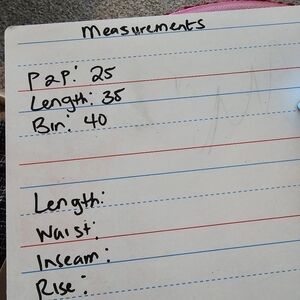 Measurements
P2P: 25
Length: 35
Bin: 40
Length:
Waist:
Inseam:
Rise: